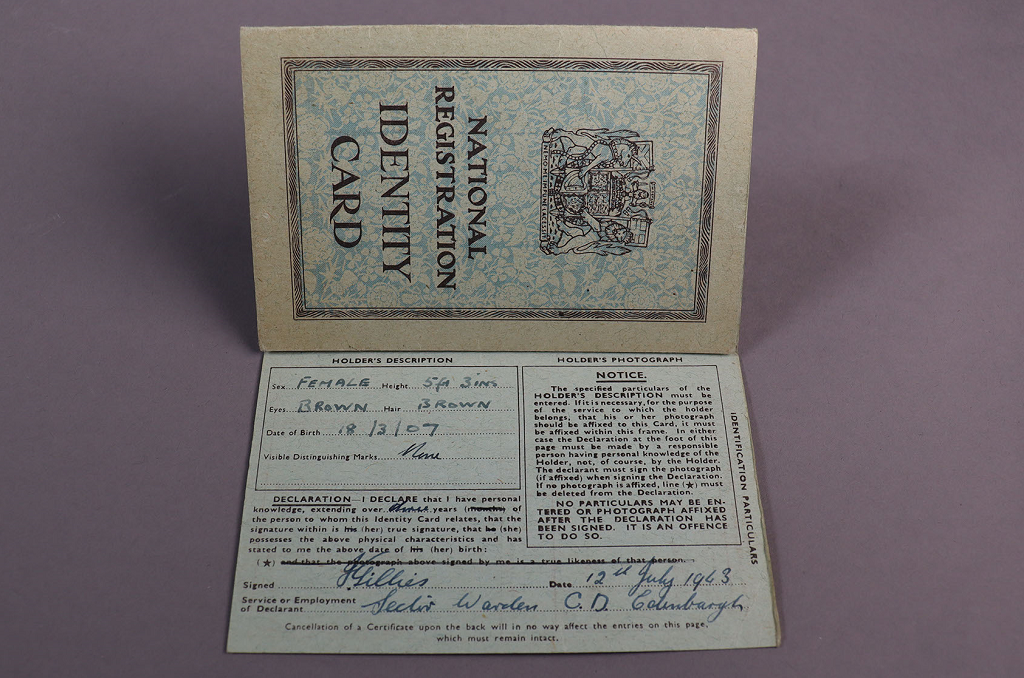 NATIONAL
REGISTRATION
IDENTITY
CARD
HOLDER'S DESCRIPTION
Sex FEMALE Height 5ft 3ins
Eyes BROWN Hair BROWN
Date of Birth 18/3/07
Visible Distinguishing Marks None
DECLARATION—I DECLARE that I have personal
knowledge, extending over three years (months) of
the person to whom this Identity Card relates, that the
signature within is his (her) true signature, that he (she)
possesses the above physical characteristics and has
stated to me the above date of his (her) birth:
(★) and that the photograph above signed by me is a true likeness of that person.
Signed Date 12th July 1943
Service or Employment
of Declarant Sector Warden C.D. Edinburgh
Cancellation of a Certificate upon the back will in no way affect the entries on this page,
which must remain intact.
HOLDER'S PHOTOGRAPH
NOTICE.
The specified particulars of the
HOLDER'S DESCRIPTION must be
entered. If it is necessary, for the purpose
of the service to which the holder
belongs, that his or her photograph
should be affixed to this Card, it must
be affixed within this frame. In either
case the Declaration at the foot of this
page must be made by a responsible
person having personal knowledge of the
Holder, not, of course, by the Holder.
The declarant must sign the photograph
(if affixed) when signing the Declaration.
If no photograph is affixed, line (★) must
be deleted from the Declaration.
NO PARTICULARS MAY BE EN-
TERED OR PHOTOGRAPH AFFIXED
AFTER THE DECLARATION HAS
BEEN SIGNED. IT IS AN OFFENCE
TO DO SO.
IDENTIFICATION PARTICULARS